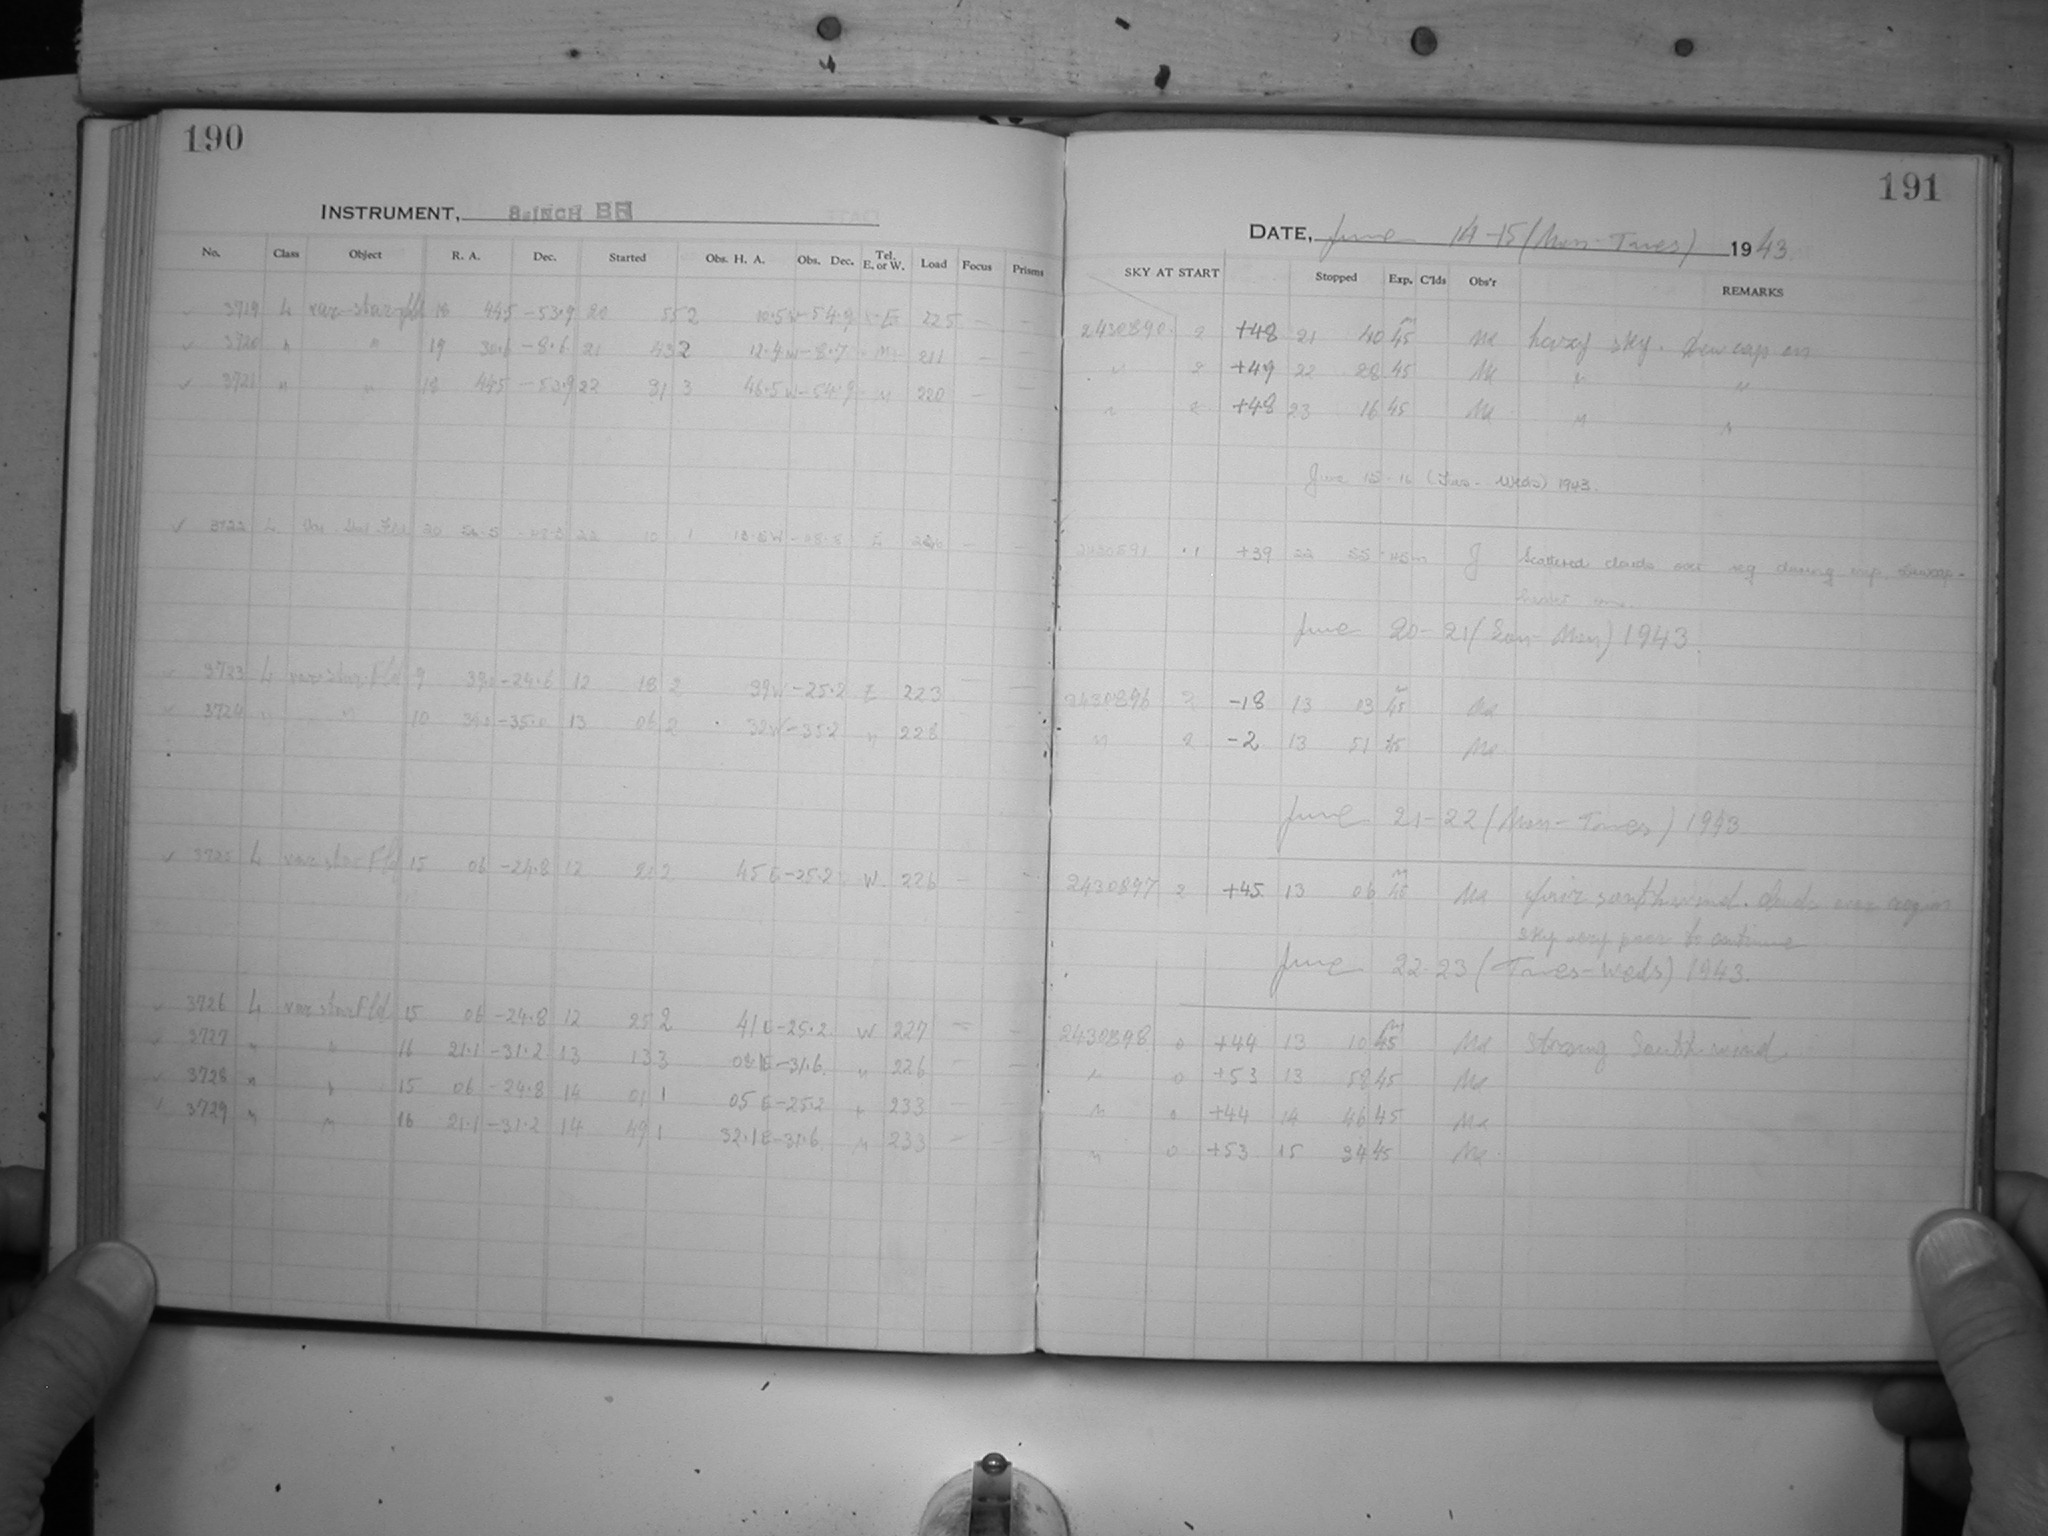 190
INSTRUMENT, 8-INCH BR
No. Class Object R. A. Dec. Started Obs. H. A. Obs. Dec. Tel. E. or W. Load Focus Prisms
3719 L var-star-fld 18 445 -53.9 20 55 2 10.5W -54.9 E 225 — —
3720 " " 19 30.6 -8.6 21 43 2 12.4W -8.7 " 211 — —
3721 " " 18 445 -53.9 22 31 3 46.5W -54.9 " 220 — —
3722 L Var Star Fld 20 22 10 1 E — —
3723 L var-star-Fld 9 -24.6 12 18 2 39W -25.2 E 223 — —
3724 " " 10 13 06 2 32W -35.2 " 228
3725 L var star Fld 15 06 -24.8 12 21 2 45E -25.2 W 226 —
3726 L var star Fld 15 06 -24.8 12 25 2 41E -25.2 W 227 — —
3727 " " 16 21.1 -31.2 13 13 3 08.1E -31.6 " 226 — —
3728 " " 15 06 -24.8 14 01 1 05E -25.2 " 233 —
3729 " " 16 21.1 -31.2 14 49 1 32.1E -31.6 " 233 —
191
DATE, June 14-15 (Mon-Tues) 1943
SKY AT START Stopped Exp. C'lds Obs'r REMARKS
2430890 2 +48 21 40 45m Ma hazy sky. Dew cap on
" 2 +49 22 28 45 Ma " "
" 2 +48 23 16 45 Ma " "
June 15-16 (Tues-Weds) 1943.
2430891 1 +39 22 55 45m J Scattered clouds over reg during exp. Dewcap-
June 20-21 (Sun-Mon) 1943.
2430896 2 -18 13 03 45 Ma
" 2 -2 13 51 45 Ma
June 21-22 (Mon-Tues) 1943
2430897 2 +45 13 06 45m Ma south wind. Clouds over region
sky very poor to continue
June 22-23 (Tues-Weds) 1943.
2430898 0 +44 13 10 45m Ma Strong South wind
" 0 +53 13 58 45 Ma
" 0 +44 14 46 45 Ma
" 0 +53 15 34 45 Ma